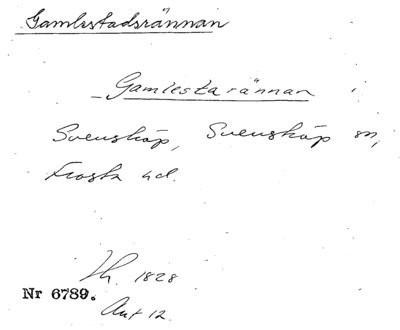 Gamlestadsrännan
Gamlestarännan
Svensköp, Svensköp sn,
Frosta hd.
Lh. 1828
Nr 6789.
Avt 12.